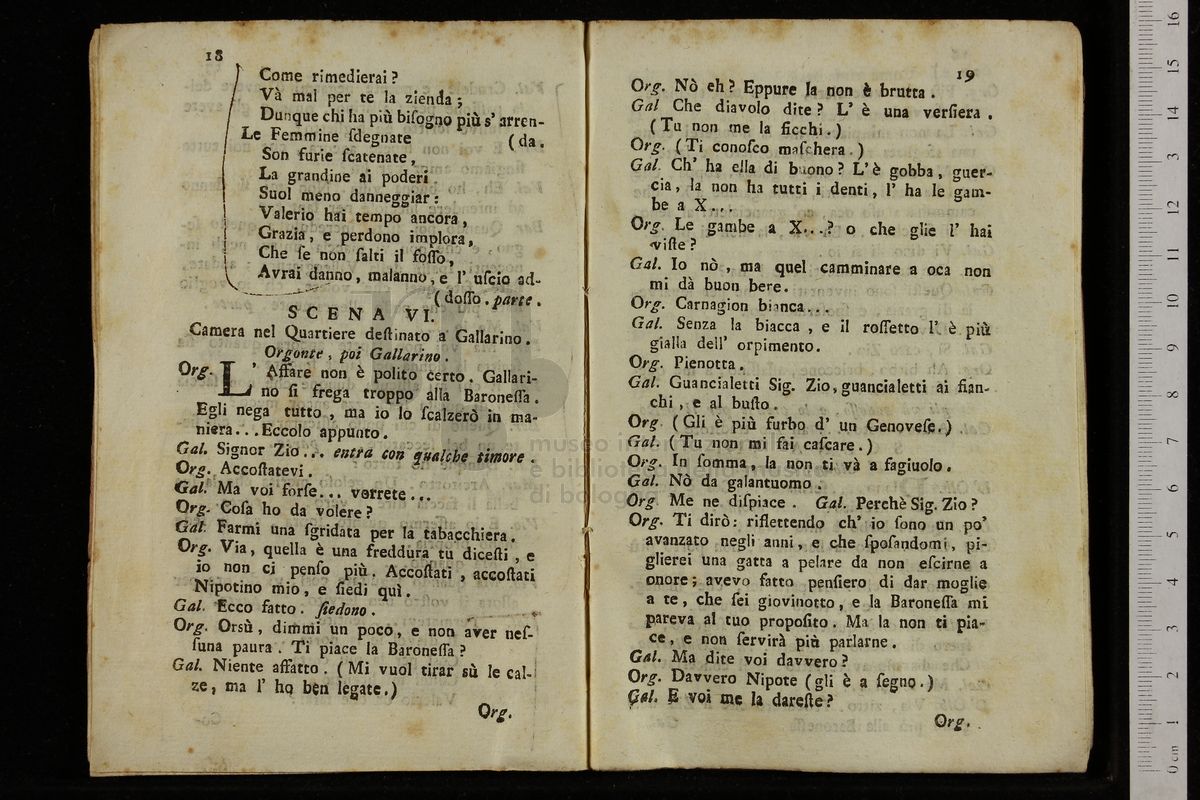 18
Come rimedierai?
Và mal per te la zienda;
Dunque chi ha più biſogno più s' arren-
Le Femmine ſdegnate (da.
Son furie ſcatenate,
La grandine ai poderi
Suol meno danneggiar:
Valerio hai tempo ancora,
Grazia, e perdono implora,
Che ſe non ſalti il foſſo,
Avrai danno, malanno, e l' uſcio ad-
(doſſo. parte.
SCENA VI.
Camera nel Quartiere deſtinato a Gallarino.
Orgonte, poi Gallarino.
Org. L' Affare non è polito certo. Gallari-
no ſi frega troppo alla Baroneſſa.
Egli nega tutto, ma io lo ſcalzerò in ma-
niera...Eccolo appunto.
Gal. Signor Zio... entra con qualche timore.
Org. Accoſtatevi.
Gal. Ma voi forſe... vorrete...
Org. Coſa ho da volere?
Gal. Farmi una ſgridata per la tabacchiera.
Org. Via, quella è una freddura tu diceſti, e
io non ci penſo più. Accoſtati, accoſtati
Nipotino mio, e ſiedi quì.
Gal. Ecco fatto. ſiedono.
Org. Orsù, dimmi un poco, e non aver neſ-
ſuna paura. Ti piace la Baroneſſa?
Gal. Niente affatto. (Mi vuol tirar sù le cal-
ze, ma l' ho ben legate.)
Org.
19
Org. Nò eh? Eppure la non è brutta.
Gal Che diavolo dite? L' è una verſiera.
(Tu non me la ficchi.)
Org. (Ti conoſco maſchera.)
Gal. Ch' ha ella di buono? L' è gobba, guer-
cia, la non ha tutti i denti, l' ha le gam-
be a X...
Org. Le gambe a X...? o che glie l' hai
viſte?
Gal. Io nò, ma quel camminare a oca non
mi dà buon bere.
Org. Carnagion bianca...
Gal. Senza la biacca, e il roſſetto l' è più
gialla dell' orpimento.
Org. Pienotta.
Gal. Guancialetti Sig. Zio, guancialetti ai fian-
chi, e al buſto.
Org (Gli è più furbo d' un Genoveſe.)
Gal. (Tu non mi fai caſcare.)
Org. In ſomma, la non ti và a fagiuolo.
Gal. Nò da galantuomo.
Org Me ne diſpiace. Gal. Perchè Sig. Zio?
Org. Ti dirò: riflettendo ch' io ſono un po'
avanzato negli anni, e che ſpoſandomi, pi-
glierei una gatta a pelare da non eſcirne a
onore; avevo fatto penſiero di dar moglie
a te, che ſei giovinotto, e la Baroneſſa mi
pareva al tuo propoſito. Ma la non ti pia-
ce, e non ſervirà più parlarne.
Gal. Ma dite voi davvero?
Org. Davvero Nipote (gli è a ſegno.)
Gal. E voi me la dareſte?
Org.